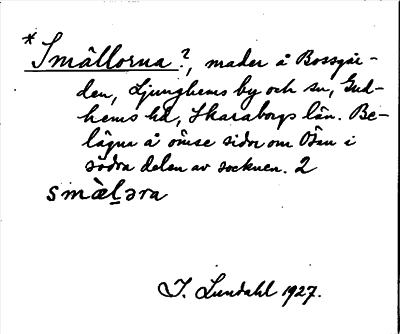 *Smällorna?, mader å Bossgår-
den, Ljunghems by och sn, Gud-
hems hd, Skaraborgs län. Be-
lägna å ömse sidor om Ösan i
södra delen av socknen. 2
smæ̀ḷəra
I. Lundahl 1927.